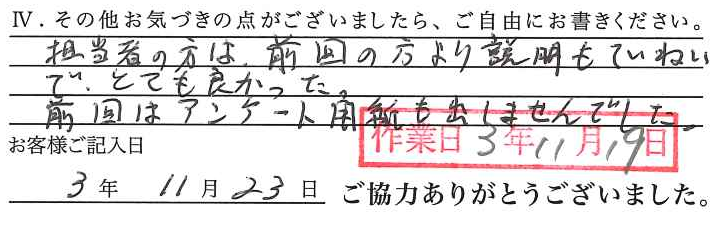 Ⅳ．その他お気づきの点がございましたら、ご自由にお書きください。
担当者の方は、前回の方より説明もていねい
で、とても良かった。
前回はアンケート用紙も出しませんでした。
作業日 3年11月19日
お客様ご記入日
3年 11月23日 ご協力ありがとうございました。